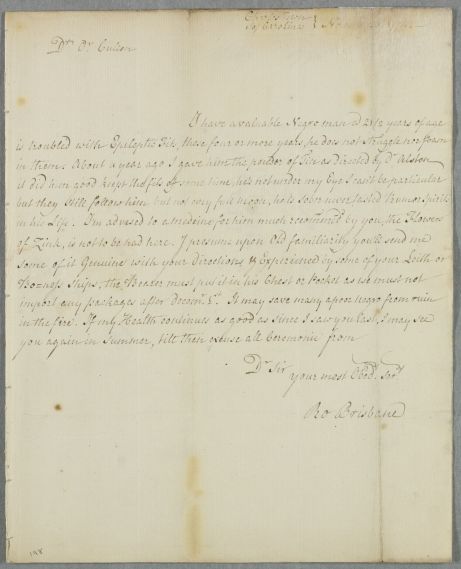 Charlestown
So. Carolina
Dr. Dr. Cullen
I have a valuable Negro man a 21/2 years of age
is troubled with Epileptic Fits, these four or more years, he does not struggle nor foam
in them. About a year ago I gave him the powder of Tin as directed by Dr. Alston
it did him good kept the fits of some time, he's not under my Eye I can't be particular
but they still follow him but not every full moon, he is sober never tasted Rum or Spirits
in his Life. I'm advised to a medicine for him much recommend by you, the Flowers
of Zink, is not to be had here. I presume upon Old familiarity you'll send me
some of it Genuine with your Directions & Experienced by some of your Leith or
Bo=ness Ships, the Bearer must put it in his Chest or Pocket as we must not
import any packages after Decemr. It may save many a poor negro from ruin
in the fire. If my Health continues as good as since I saw you last, I may see
you again in Summer, till then excuse all Ceremonie from
Dr. Sir
your most Obedt. Sert.
Ro Brisbane